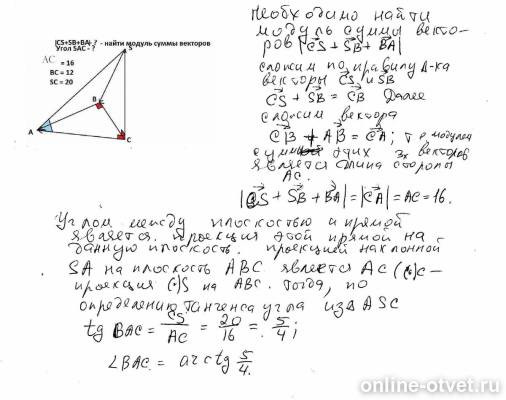 |CS+SB+BA| ? - найти модуль суммы векторов
Угол SAC - ?
AC = 16
BC = 12
SC = 20
S
B
A
C
Необходимо найти
модуль суммы векто-
ров |CS + SB + BA|
сложим по правилу Δ-ка
векторы CS и SB
CS + SB = CB Далее
сложим вектора
CB + AB = CA; т.е. модулем
суммы этих 3х векторов
является длина стороны
AC.
|CS + SB + BA| = |CA| = AC = 16.
Углом между плоскостью и прямой
является проекция этой прямой на
данную плоскость. проекцией наклонной
SA на плоскость ABC является AC (C-
проекция (·)S на ABC. Тогда, по
определению тангенса угла из ΔASC
tg BAC = CS/AC = 20/16 = 5/4;
∠BAC = arctg 5/4.
online-otvet.ru